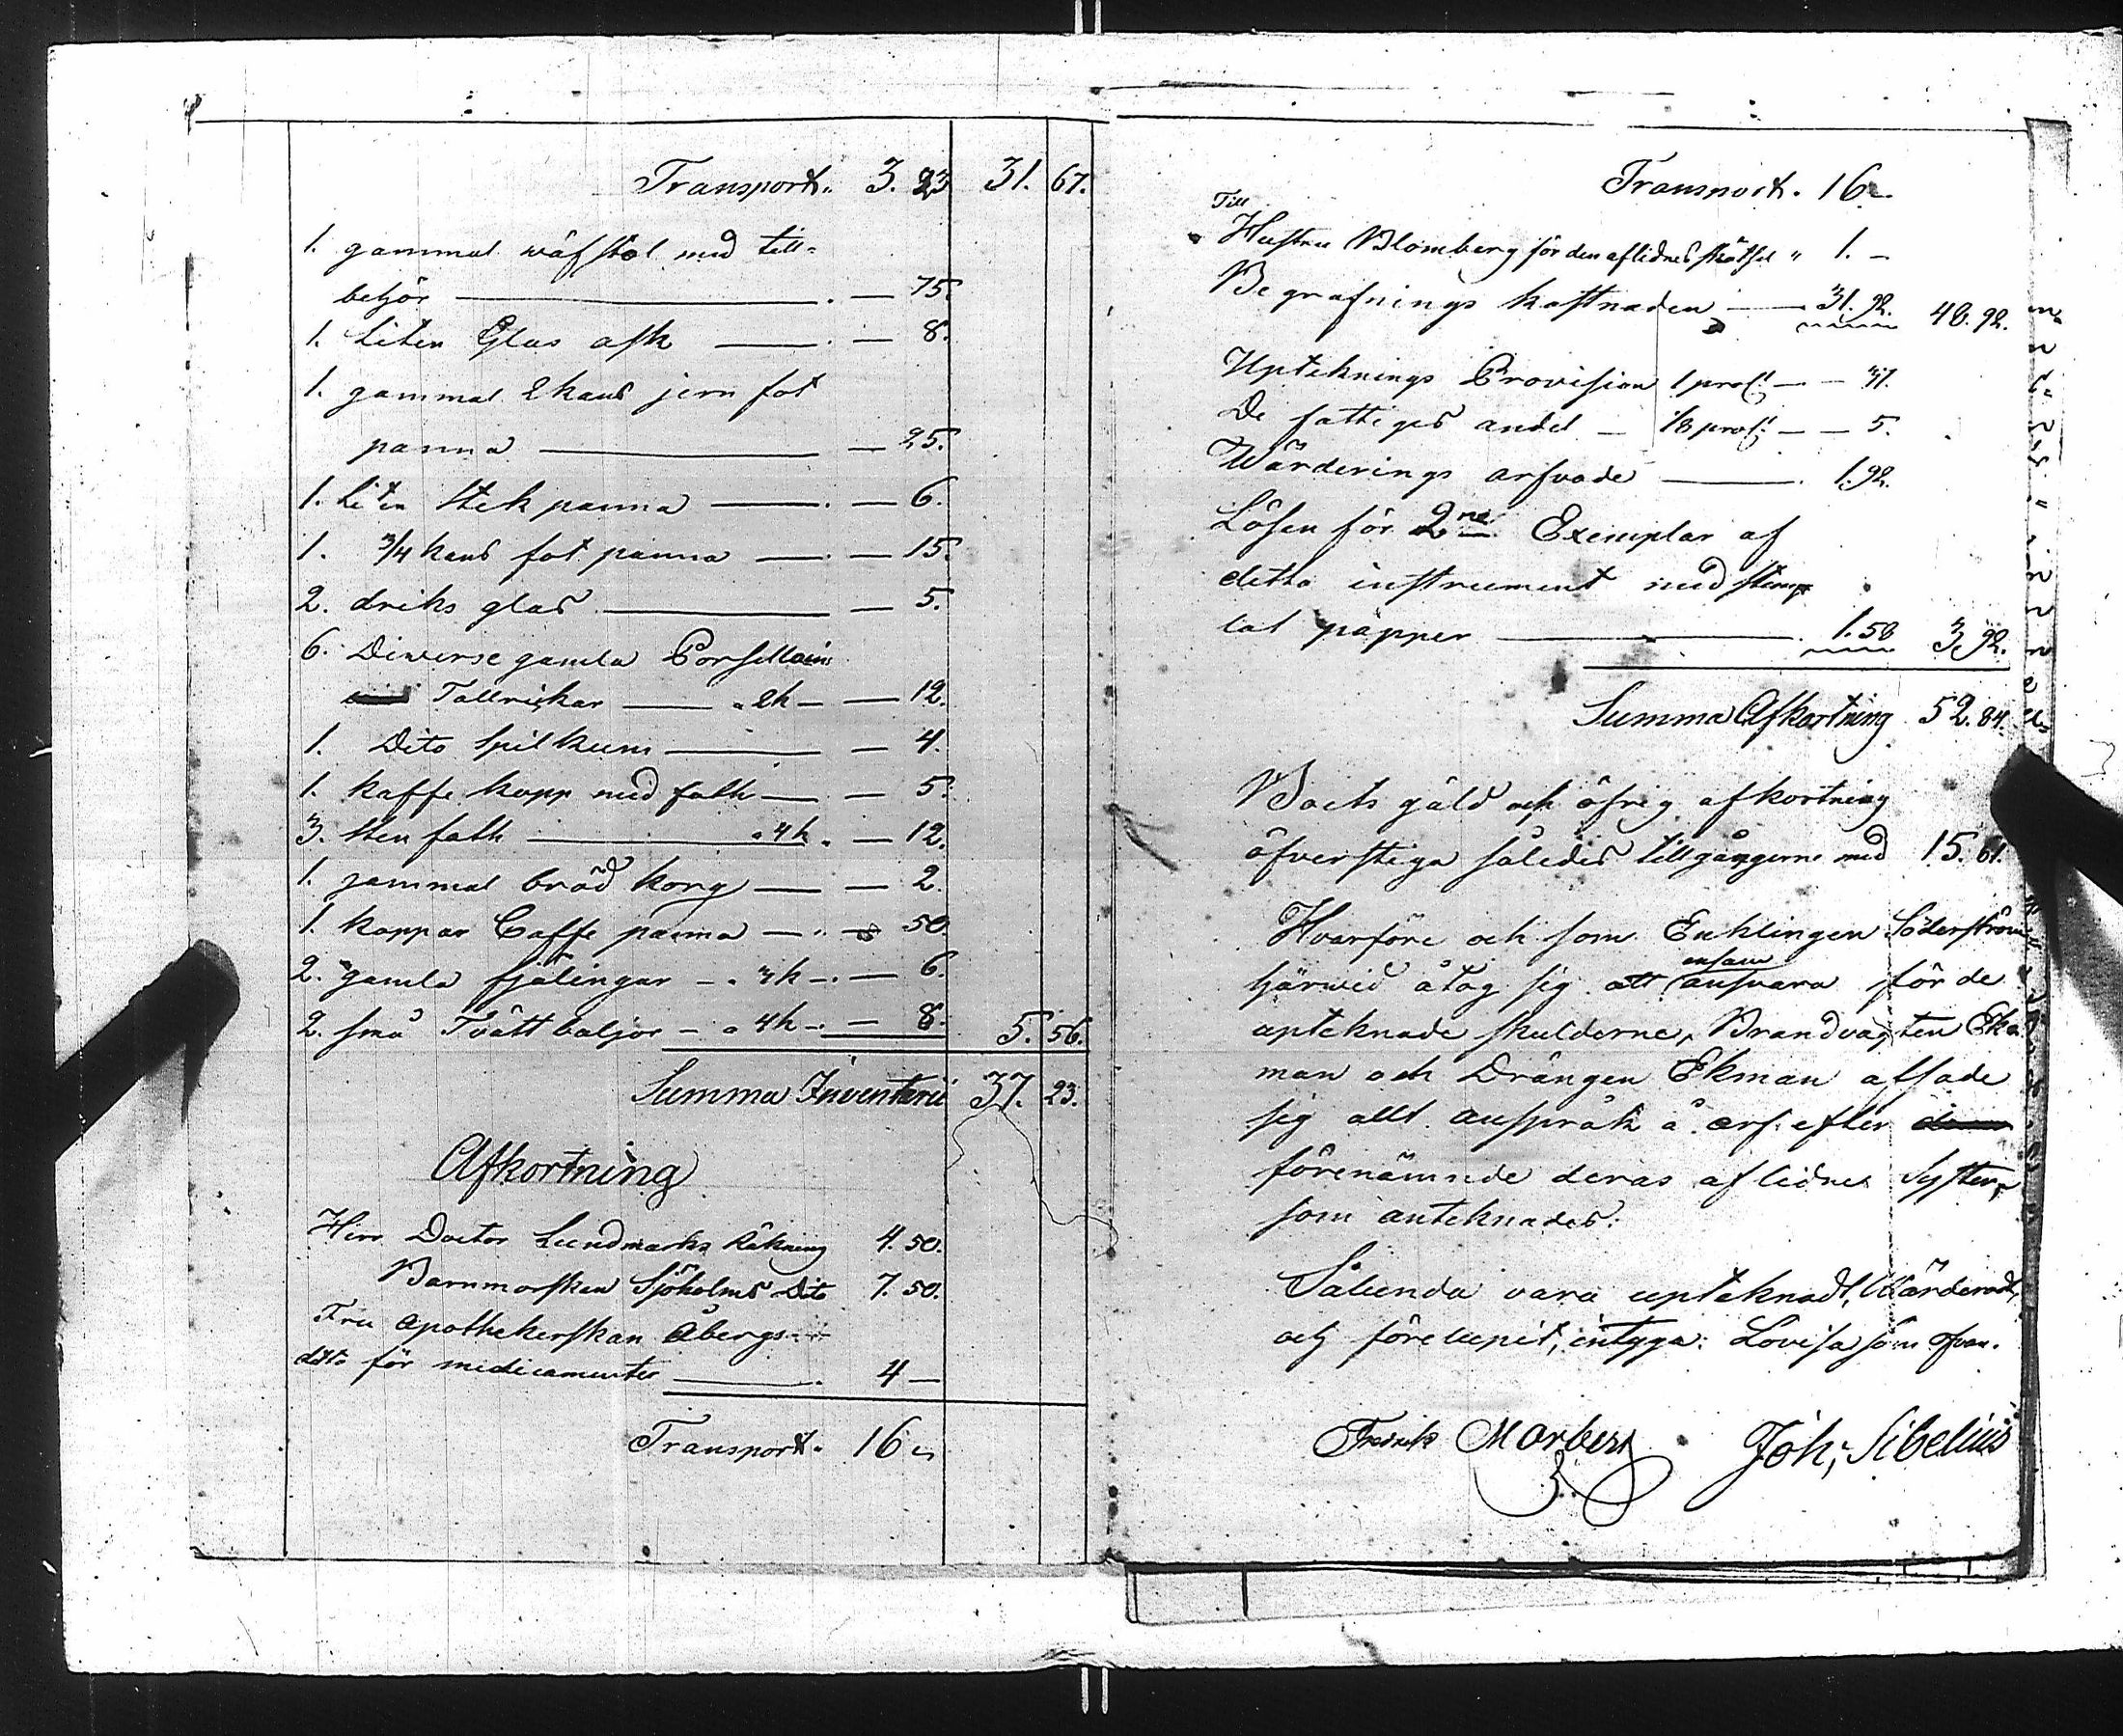 Transport. 3. 23 31. 67.
1. gammal wäfstol med till-
behör — . — 75.
1. Liten Glas ask — . — 8.
1. gammal 2 kans jern fot
panna — — 25.
1. Liten Stek panna — . — 6.
1. 3/4 kans fot panna — . — 15.
2. driks glas — — 5.
6. Diverse gamla Porsellains
Tallrickar — a 2k — — 12.
1. Dito Spilkum — — 4.
1. kaffe kopp med fath — — 5.
3. Sten fath — a 4k. — 12.
1. gammal bröd korg — — 2.
1. koppar Caffe panna — . — 50
2. gamla fjälingar — a 3k — . — 6.
2. små Tvätt baljor — a 4k — . — 8. 5. 56.
Summa Inventarii 37. 23.
Afkortning
Herr Doctor Lundmarks Räkning 4. 50.
Barnmorskan Sjöholms Dito 7. 50.
Fru Apothekerskan Åbergs
dito för medicamenter — . 4 —
Transport. 16 „
Transport. 16 „
Till
Hustru Blomberg för den aflidnes skötsel „ 1. —
Begrafnings kostnaden — 31. 92. 48. 92.
Upteknings Provision 1 proct — — 37.
De fattiges andel — 1/8 proct — — 5.
Wärderings arfvode — . 1. 92.
Lösen för 2ne Exemplar af
detta instrument med stemp
lat papper — . 1. 58 3. 92.
Summa Afkortning 52. 84.
Boets gäld och öfrig afkortning
öfverstiga således tillgångerne med 15. 61.
Hvarföre och som Enklingen Söderström
härwid åtog sig att ensam ansvara för de
upteknade skulderne, Brandvagten Ek
man och Drängen Ekman afsade
sig allt anspråk å arf efter
förenämnde deras aflidne Syster,
som anteknades.
Sålunda vara upteknadt, Wärderadt,
och förelupit, intyga: Lovisa som ofvan.
Fredrik Marberg Joh, Sibelius